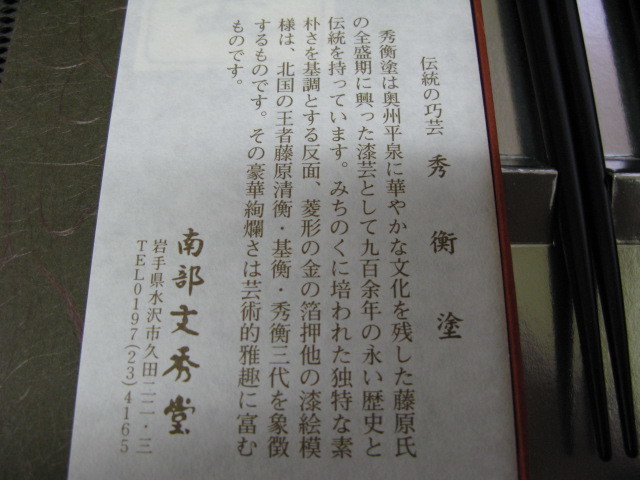 伝統の巧芸 秀衡塗
秀衡塗は奥州平泉に華やかな文化を残した藤原氏
の全盛期に興った漆芸として九百余年の永い歴史と
伝統を持っています。みちのくに培われた独特な素
朴さを基調とする反面、菱形の金の箔押他の漆絵模
様は、北国の王者藤原清衡・基衡・秀衡三代を象徴
するものです。その豪華絢爛さは芸術的雅趣に富む
ものです。
南部文秀堂
岩手県水沢市久田二二・三
TEL0197(23)4165